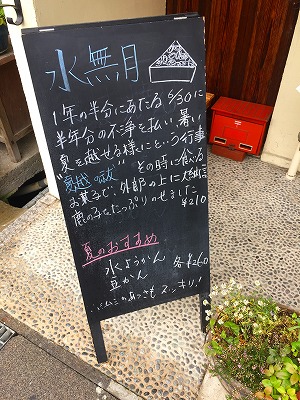 水無月
1年の半分にあたる6/30に
半年分の不浄を払い、暑い
夏を越せる様にという行事
"夏越の祓" その時に食べる
お菓子で、外郎の上に大納言
鹿の子をたっぷりのせました
¥210
夏のおすすめ
水ようかん
豆かん
各¥260